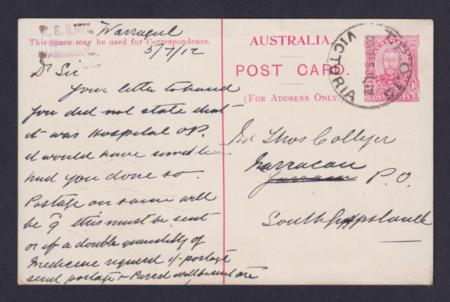 Warragul
This space may be used for Correspondence.
3/7/12
AUSTRALIA.
POST CARD.
(FOR ADDRESS ONLY)
VICTORIA
Dr Sir
Your letter to hand
You did not state that
it was Hospital OP.
it would have saved time
had you done so.
Postage on same will
be 9 this must be sent
or if a double quantity of
Medicine required 1/- postage
send postage &
Mr Thos Collyer
Yarracan
P.O.
South Gippsland